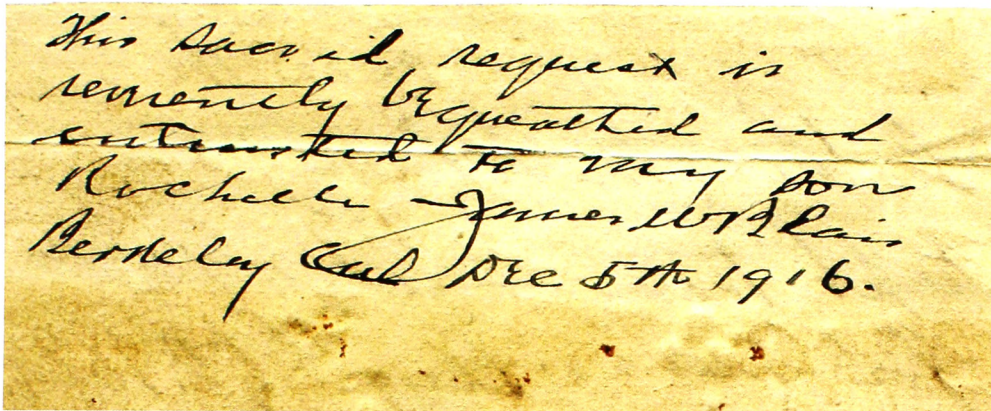 This sacred request is
reverently bequeathed and
entrusted to my son
Rochelle - James W Blair
Berkeley Cal Dec 5th 1916.